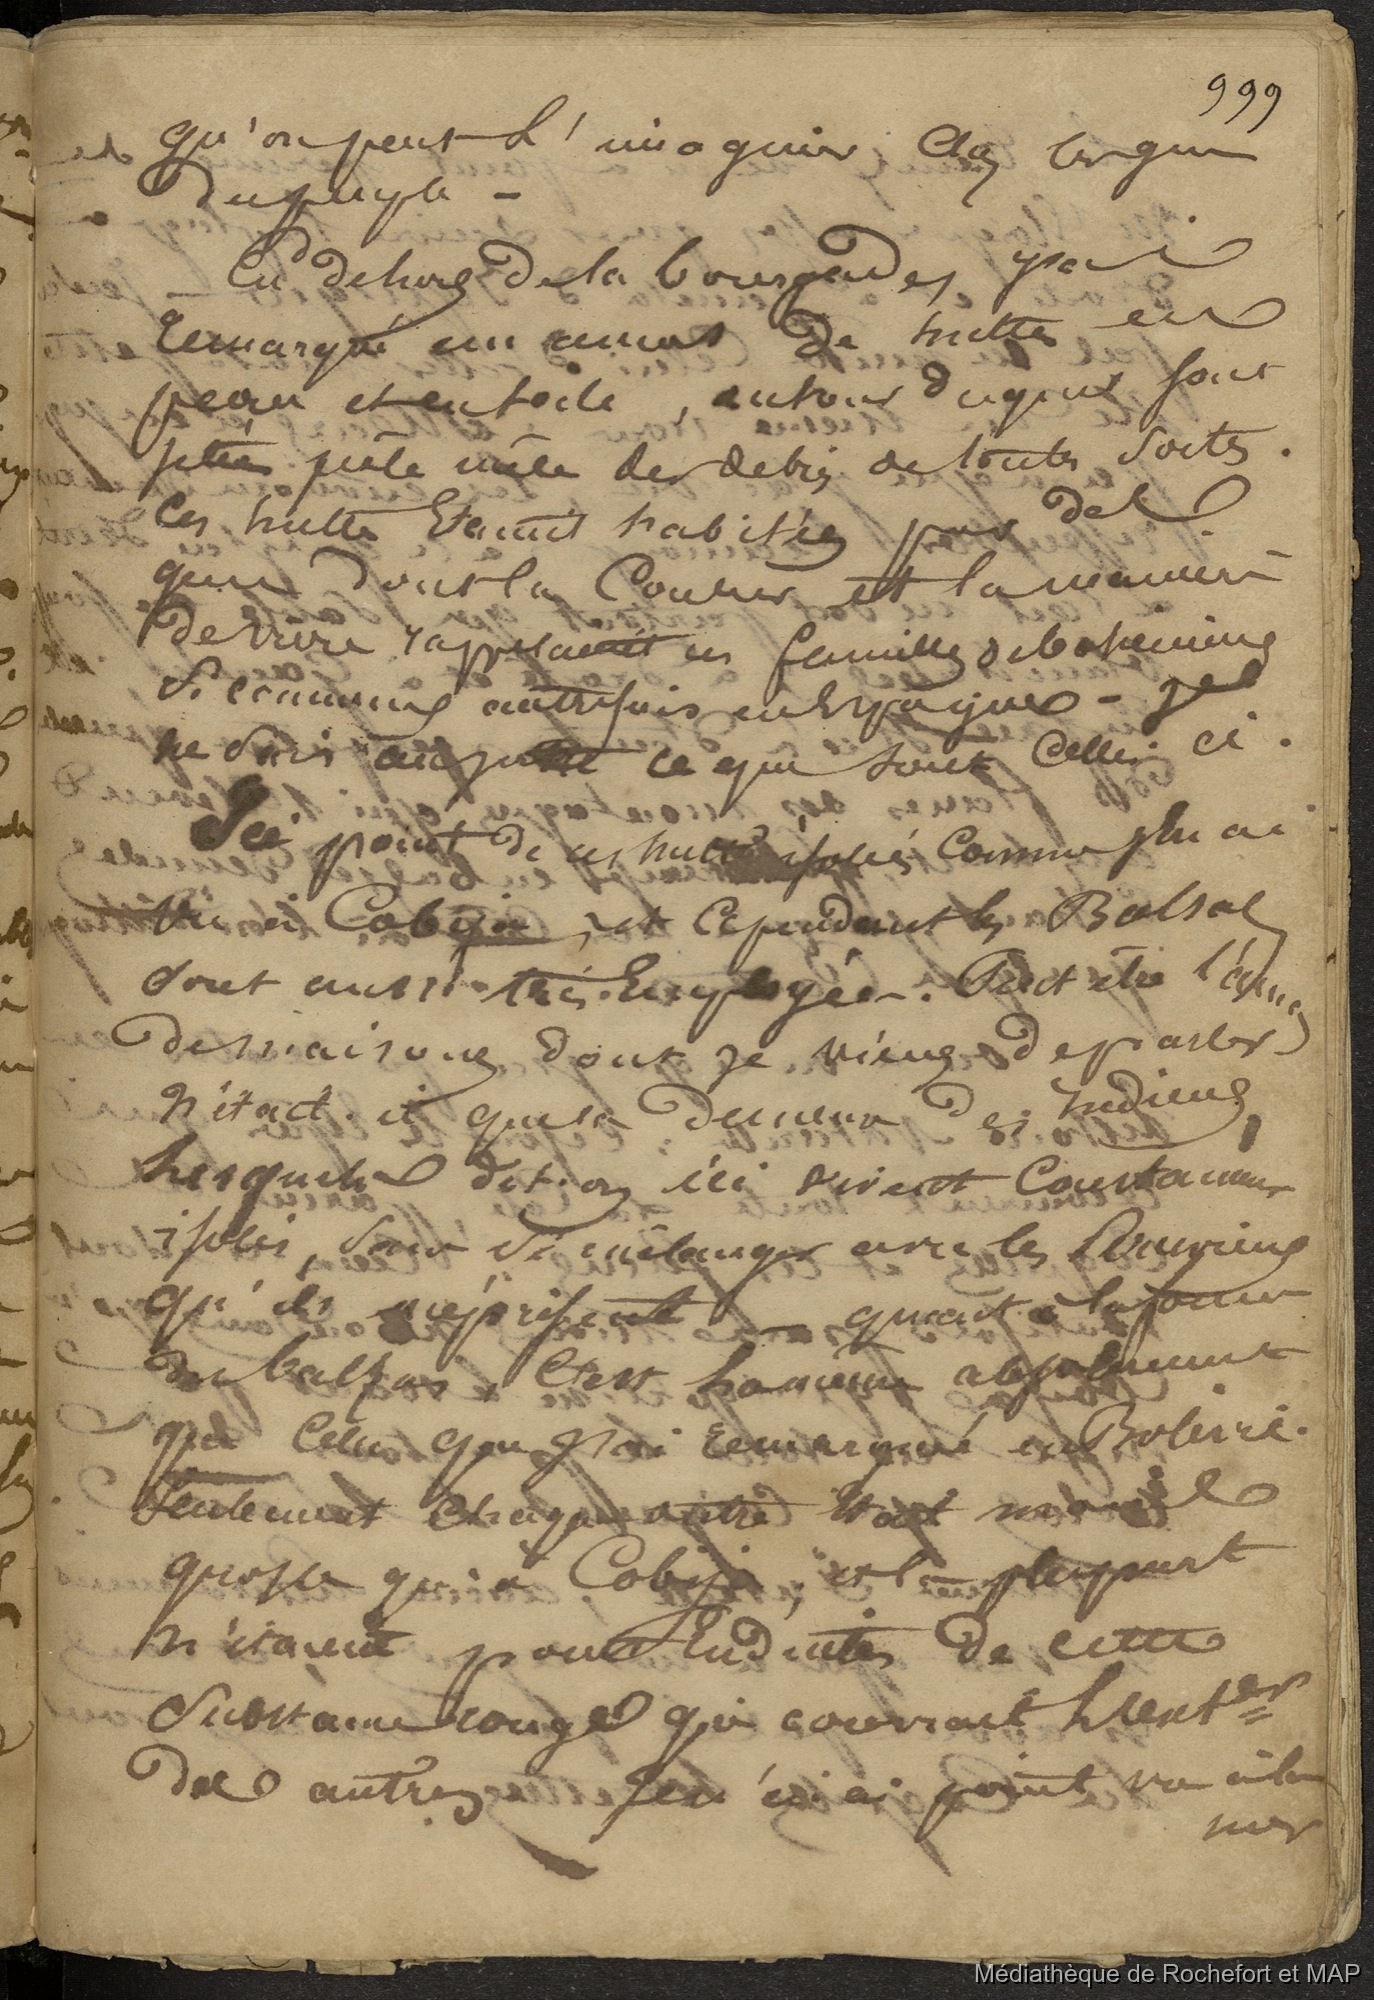 999
qu'on peut s'imaginer chez les gens
du peuple -
_ En dehors de la bourgade, j'ai
remarqué un amas de huttes en
peau et en toile, autour duquel sont
jetés pêle mêle des debris de toutes sortes.
Ces huttes étaient habitées par des
gens dont la couleur et la maniere
de vivre rappelaient ces familles de bohemiens
si communs autrefois en Espagne - Je
ne sais au juste ce que sont celles ci.
Ici point de ces huttes isolées comme j'en ai
vu à Cobija, et cependant les Balsas
sont aussi très employées. Peut être l'amas
de maisons dont je viens de parler
n'était-il que la demeure des Indiens,
lesquels dit-on ici vivent constamment
isolés, sans se mélanger avec les Péruviens
qu'ils méprisent _ quant à la forme
des balsas, c'est la même absolument
que celle que j'ai remarqué en Bolivie.
Seulement chaque outre était moins
grosse qu'à Cobija, et la plupart
n'étaient point enduites de cette
substance rouge qui couvrait l'extér
des autres. Je n'en ai point vu à la
mer
Médiathèque de Rochefort et MAP